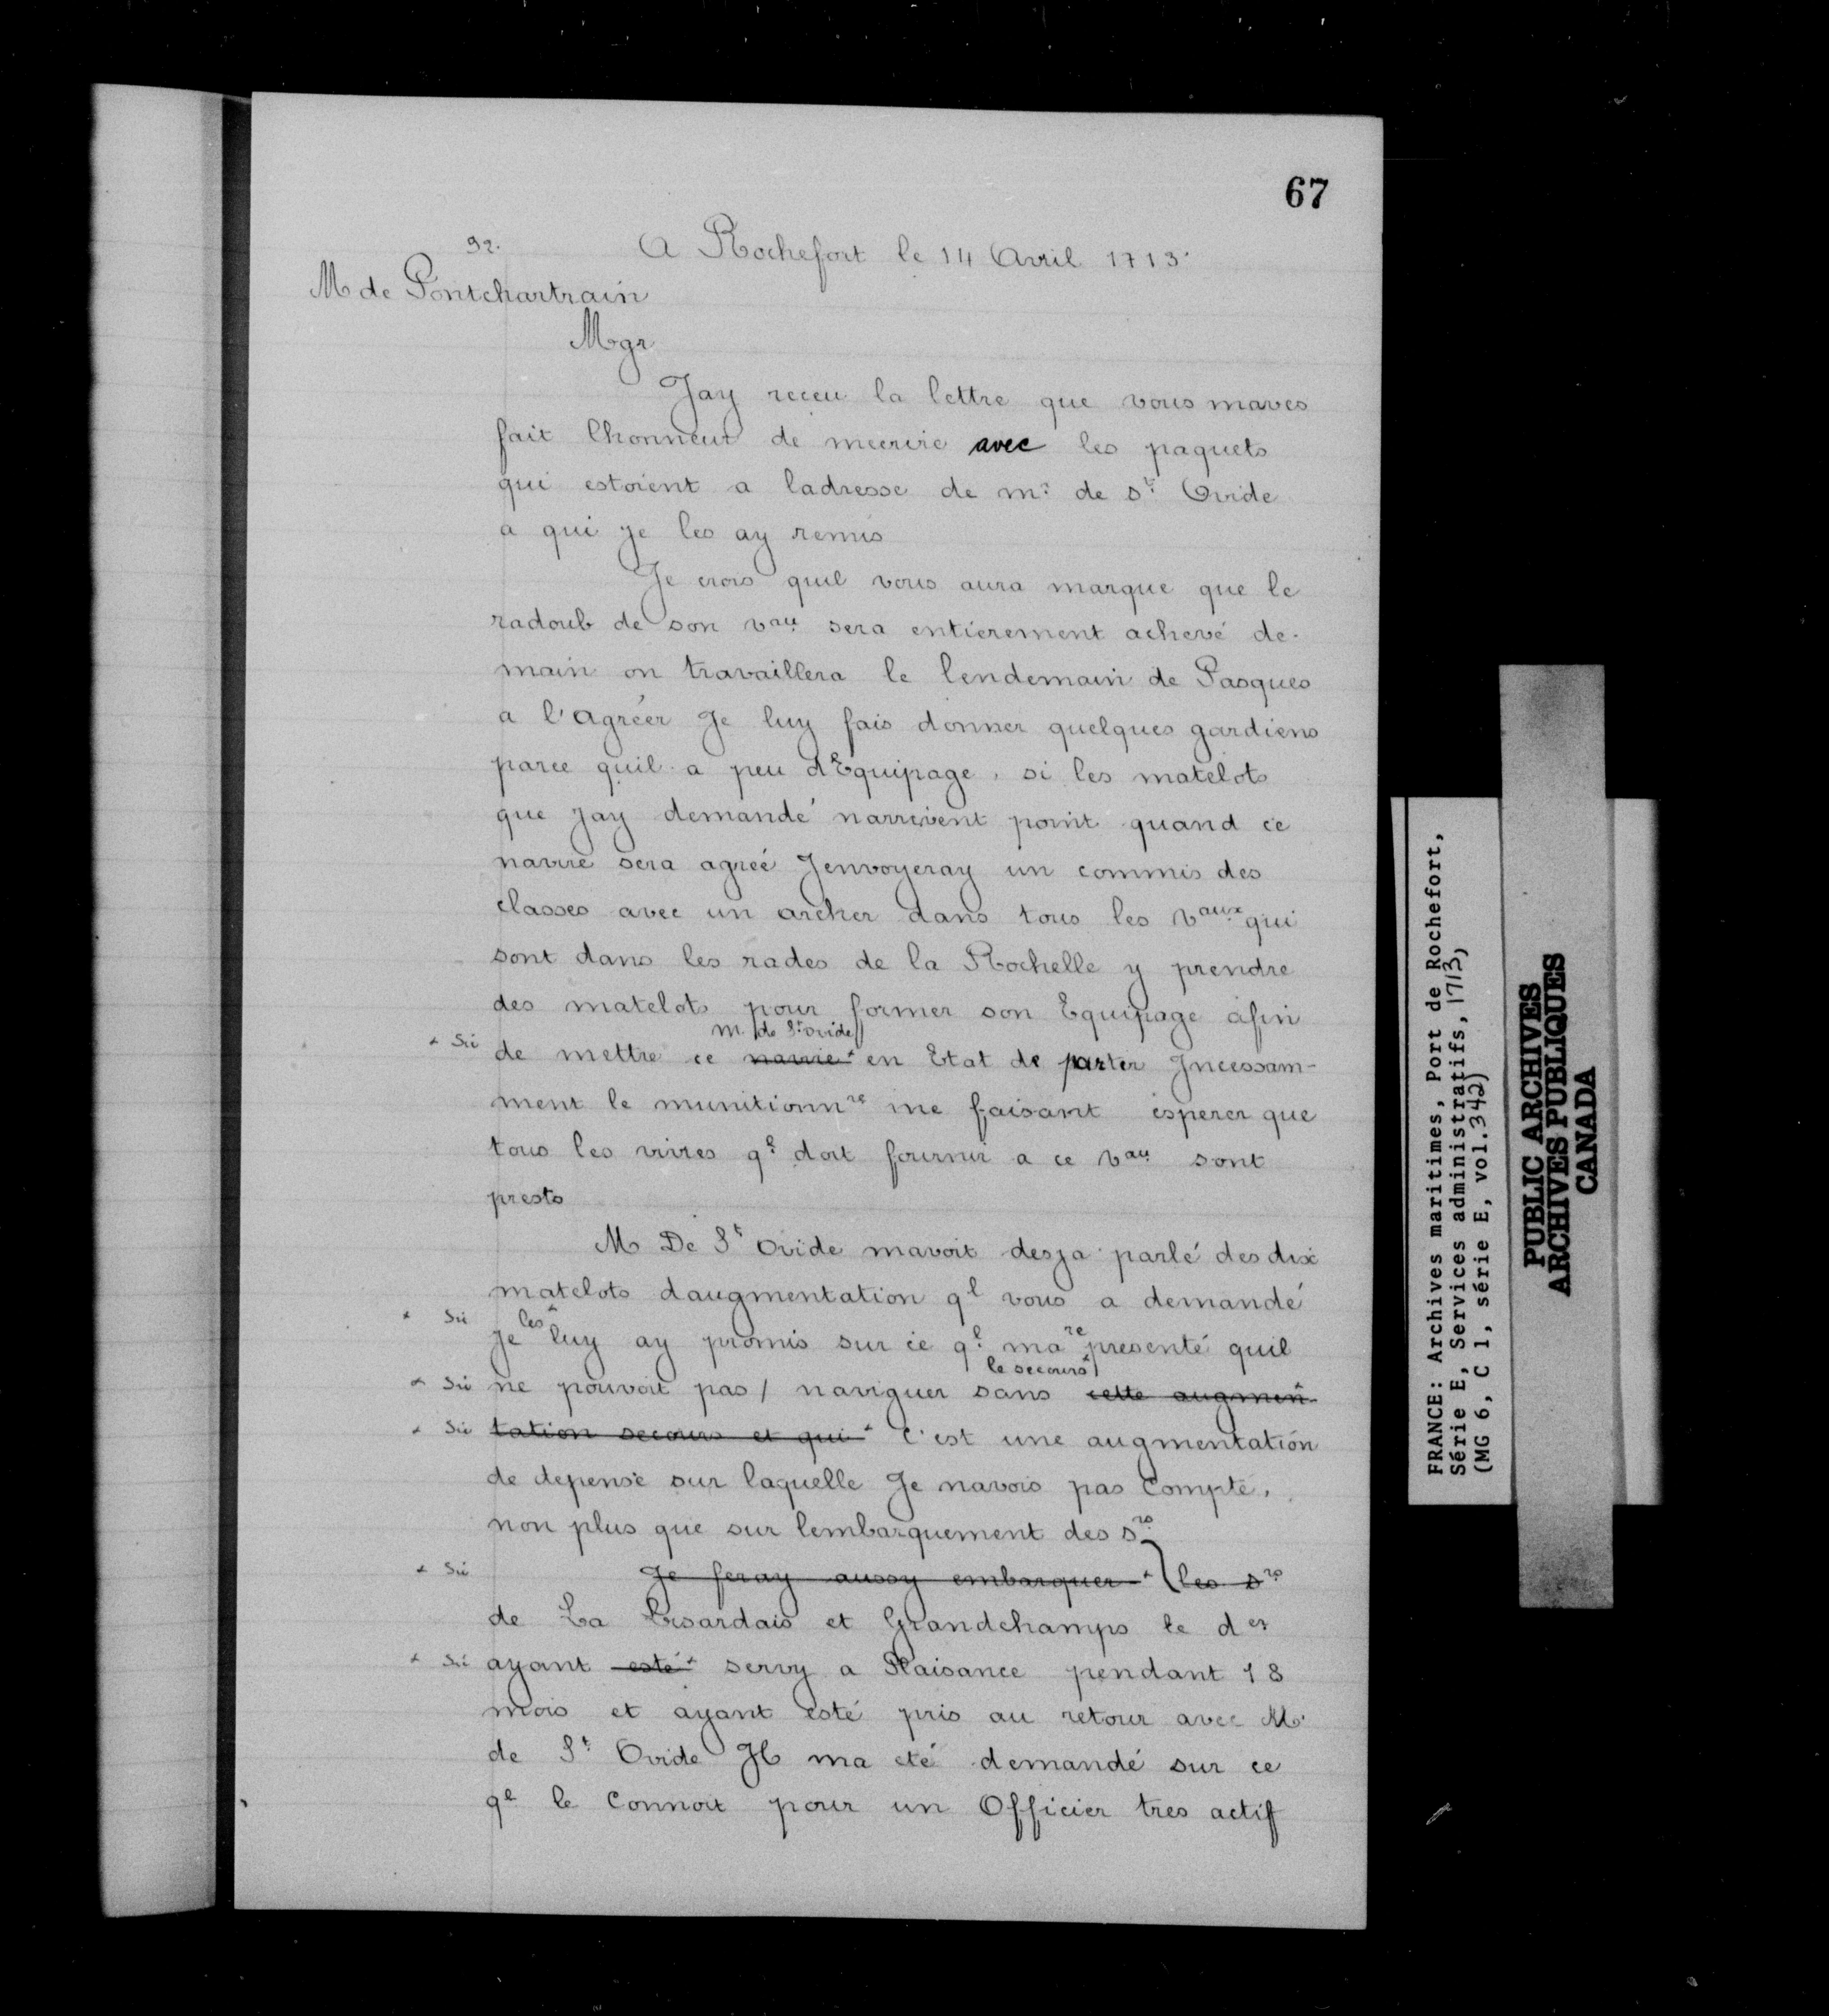 67
92.
A Rochefort le 14 Avril 1713.
M de Pontchartrain
Mgr
Jay receu la lettre que vous maves
fait lhonneur de mecrire avec les paquets
qui estoient a ladresse de mr de st Ovide
a qui je les ay remis
Je crois quil vous aura marque que le
radoub de son vau sera entierement achevé de-
main on travaillera le lendemain de Pasques
a l'agréer Je luy fais donner quelques gardiens
parce quil a peu d'Equipage, si les matelots
que Jay demandé narrivent point quand ce
navire sera agréé Jenvoyeray un commis des
classes avec un archer dans tous les vaux qui
sont dans les rades de la Rochelle y prendre
des matelots pour former son Equipage afin
m de St ovide
+ Sic de mettre ce navire + en Etat de partir Incessam-
ment le munitionnre me faisant esperer que
tous les vivres ql doit fournir a ce vau sont
prests
M De St Ovide mavoit desja parlé des dix
matelots daugmentation ql vous a demandé
+ Sic Je les luy ay promis sur ce ql ma representé quil
le secours
+ Sic ne pouvoit pas / naviguer sans cette augmen-
+ Sic tation secours et qui + C'est une augmentation
de depense sur laquelle Je navois pas Compté,
non plus que sur lembarquement des srs
+ Sic Je feray aussy embarquer + les srs
de La et Grandchamps le der
+ Sic ayant esté + servy a Plaisance pendant 18
mois et ayant esté pris au retour avec M.
de St Ovide Il ma eté demandé sur ce
ql le Connoit pour un Officier tres actif
FRANCE: Archives maritimes, Port de Rochefort,
Série E, Services administratifs, 1713)
(MG 6, C 1, série E, vol. 342)
PUBLIC ARCHIVES
ARCHIVES PUBLIQUES
CANADA